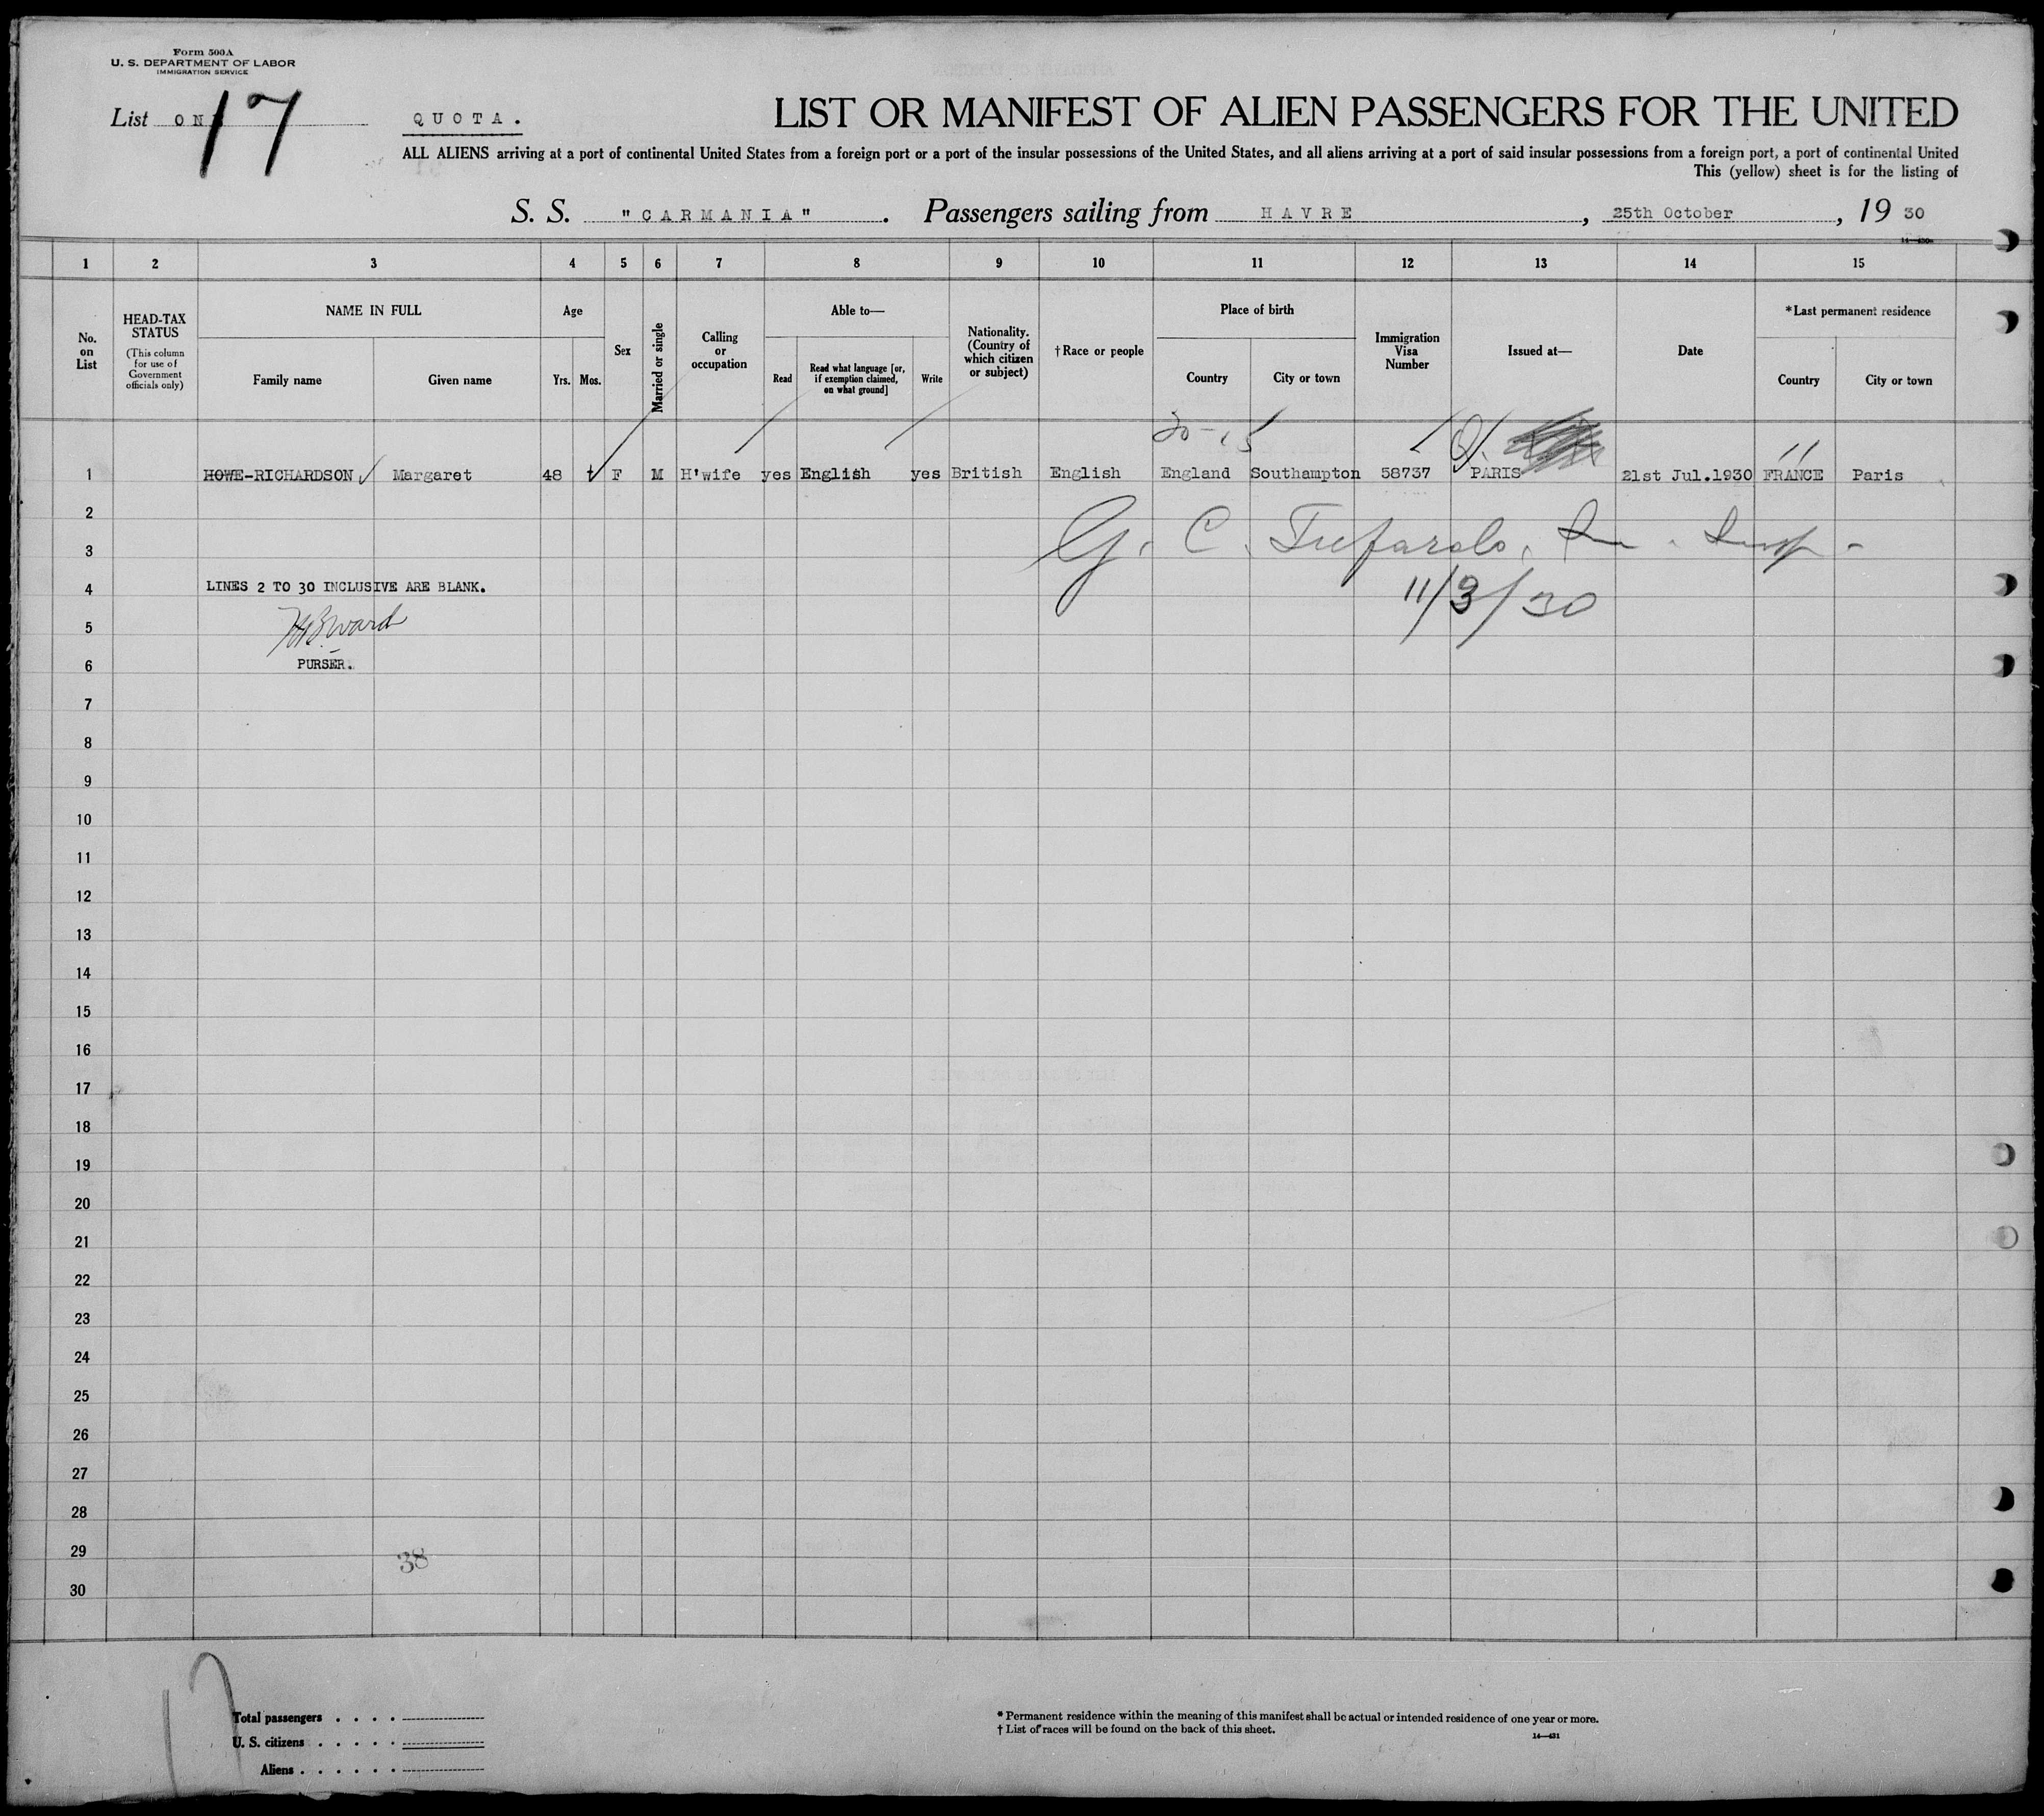 Form 500A
U. S. DEPARTMENT OF LABOR
IMMIGRATION SERVICE
List ON 17
QUOTA.
LIST OR MANIFEST OF ALIEN PASSENGERS FOR THE UNITED
ALL ALIENS arriving at a port of continental United States from a foreign port or a port of the insular possessions of the United States, and all aliens arriving at a port of said insular possessions from a foreign port, a port of continental United
This (yellow) sheet is for the listing of
S. S. "CARMANIA". Passengers sailing from HAVRE, 25th October, 19 30
1 2 3 4 5 6 7 8 9 10 11 12 13 14 15
No. on List
HEAD-TAX STATUS
(This column for use of Government officials only)
NAME IN FULL
Family name
Given name
Age
Yrs. Mos.
Sex
Married or single
Calling or occupation
Able to—
Read
Read what language [or, if exemption claimed, on what ground]
Write
Nationality. (Country of which citizen or subject)
†Race or people
Place of birth
Country
City or town
Immigration Visa Number
Issued at—
Date
*Last permanent residence
Country
City or town
20-15
1 HOWE-RICHARDSON Margaret 48 F M H'wife yes English yes British English England Southampton 58737 PARIS 21st Jul.1930 FRANCE Paris
2
G. C.
3
4 LINES 2 TO 30 INCLUSIVE ARE BLANK.
11/3/30
5
Ward
6 PURSER.
7
8
9
10
11
12
13
14
15
16
17
18
19
20
21
22
23
24
25
26
27
28
29
38
30
17
Total passengers
U. S. citizens
Aliens
* Permanent residence within the meaning of this manifest shall be actual or intended residence of one year or more.
† List of races will be found on the back of this sheet.
14—431